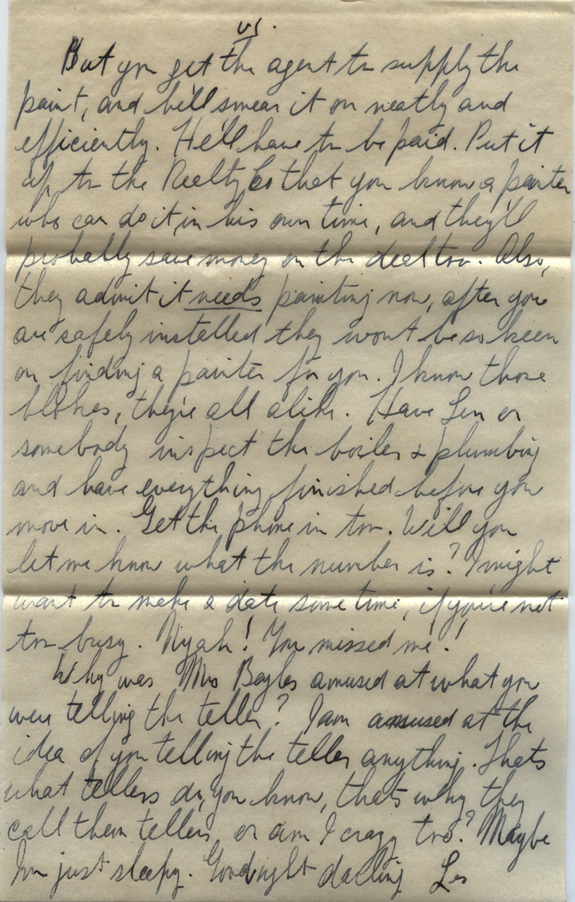 VI.
But you get the agent to supply the
paint, and he'll smear it on neatly and
efficiently. He'll have to be paid. Put it
up to the Realty Co that you know a painter
who can do it in his own time, and they'll
probably save money on the deal too. Also,
they admit it needs painting now, after you
are safely installed they wont be so keen
on finding a painter for you. I know those
blokes, they're all alike. Have Len or
somebody inspect the boiler & plumbing
and have everything finished before you
move in. Get the phone in too. Will you
let me know what the number is? I might
want to make a date some time, if you're not
too busy. Nyah! You missed me!
Why was Mrs Bayles amused at what you
were telling the teller? I am amused at the
idea of you telling the teller anything. Thats
what tellers do, you know, thats why they
call them tellers, or am I crazy too? Maybe
I'm just sleepy. Goodnight darling Les